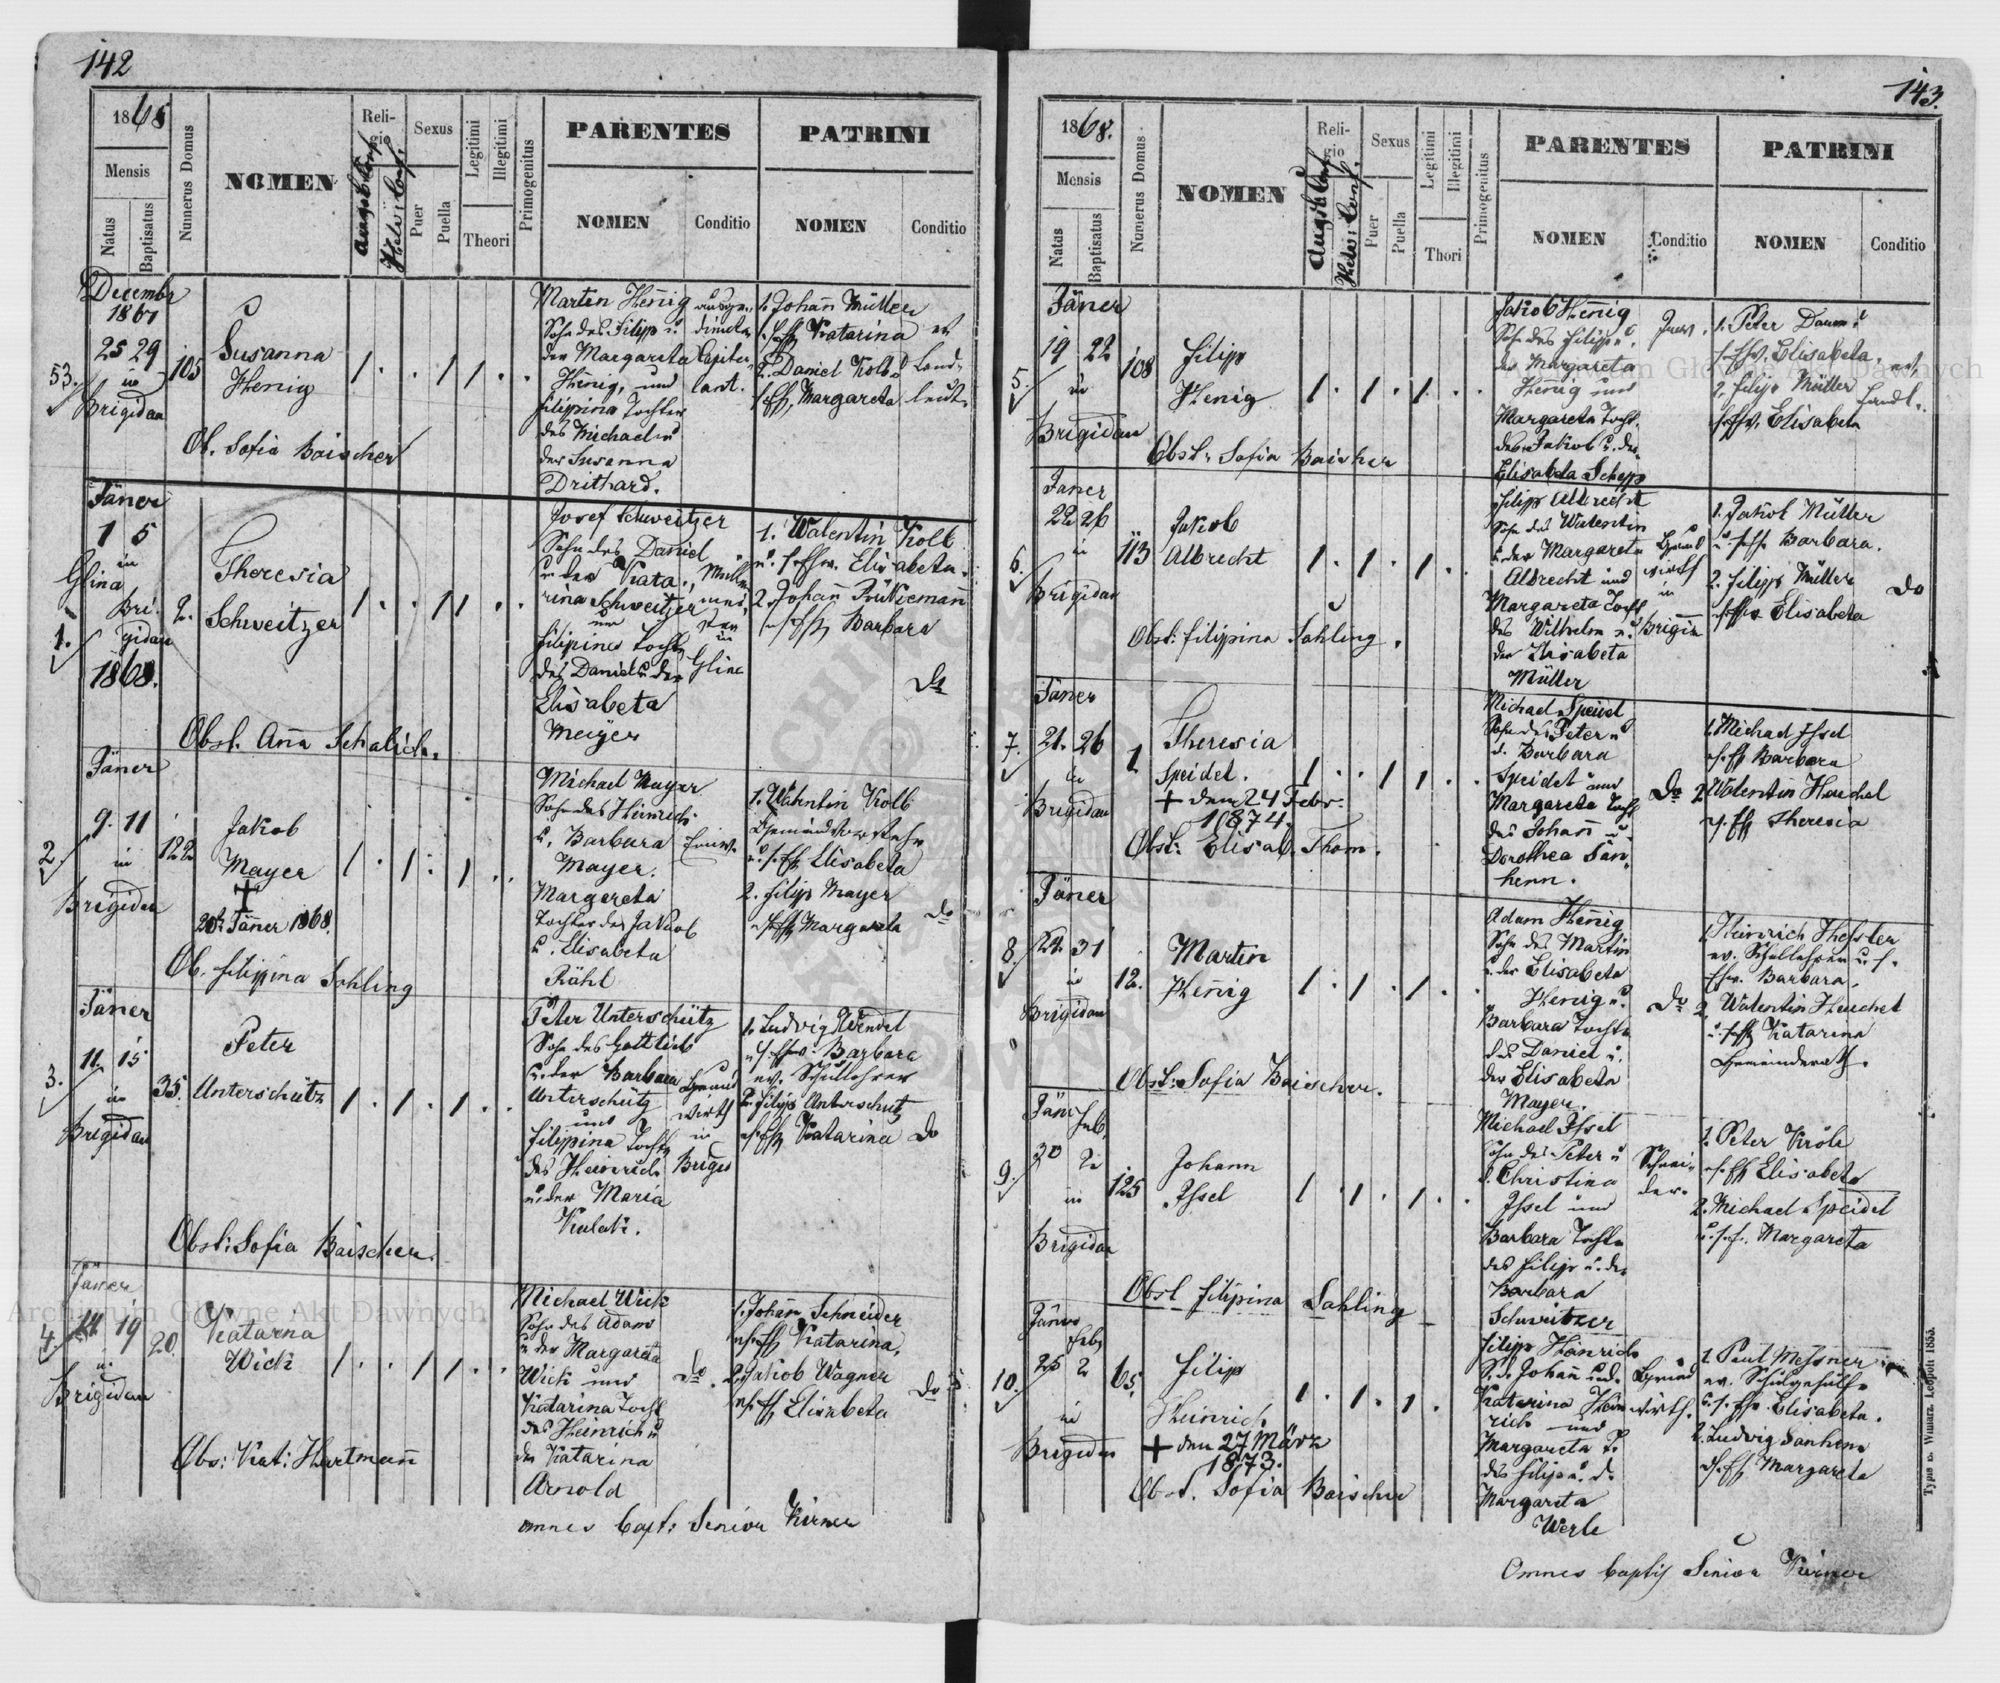 142
1868
Mensis
Natus
Baptisatus
Numerus Domus
NOMEN
Religio
Augsb. Conf.
Helv: Conf.
Sexus
Puer
Puella
Legitimi
Illegitimi
Theori
Primogenitus
PARENTES
NOMEN
Conditio
PATRINI
NOMEN
Conditio
53.
Decembr
1867
25 29
in
Brigidau
105
Susanna
Henig
Ob. Sofia Baischer
Marten Henig
Sohn des Filipp u
der Margareta
Henig, und
Filipina Tochter
des Michael u
der Susanna
Drithard.
1. Johan Müller
Katarina
2. Daniel Kolb
Margareta
ev
Land-
leute
1.
Jäner
1 5
in
Glina
Bri-
gidau
1868.
2.
Theresia
Schweitzer
Obst. Anna Schalick.
Josef Schweitzer
Sohn des Daniel
u der Kata-
rina Schweitzer
und
Filipine Tocht
des Daniel u der
Elisabeta
Meiyer
in
Gline
1. Walentin Kolb
u. s. Ehw. Elisabeta.
2. Johan
Barbara
Do
2.
Jäner
9. 11
in
Brigidau
122
Jakob
Mayer
+
20t Jäner 1868.
Ob. Filippina Sohling
Michael Mayer
Sohn des Heinrich
u. Barbara
Mayer.
Margareta
Tochter des Jakob
u. Elisabeta
Röhl
1. Walentin Kolb
Gemeindvorsteher
Elisabeta
2. Filip Mayer
Margareta
Do
3.
Jäner
11. 15
in
Brigidau
35.
Peter
Unterschütz
Obst: Sofia Baischer.
Peter Unterschütz
Sohn des Gottlieb
u. der Barbara
Unterschütz
und
Filippina Tocht
des Heinrich
u. der Maria
Kulak.
Grund
wirth
in
Briges
1. Ludvig Wendel
Barbara
ev. Schullehrer
2. Filip Unterschutz
Katarina
Do
4.
Jäner
14 19
in
Brigidau
20.
Katarna
Wick
Obs: Kat: Hartmann
Michael Wick
Sohn des Adam
u der Margareta
Wick und
Katarina Tocht
des Heinrich u
der Katarina
Arnold
Do.
1. Johan Schneider
Katarina,
2. Jakob Wagner
Elisabeta
Do
omnes bapt: Senior Kirner
143.
1868.
Mensis
Natus
Baptisatus
Numerus Domus
NOMEN
Religio
Augsb. Conf.
Helv: Conf.
Sexus
Puer
Puella
Legitimi
Illegitimi
Thori
Primogenitus
PARENTES
NOMEN
Conditio
PATRINI
NOMEN
Conditio
5.
Jäner
19 22
in
Brigidau
108
Filipp
Henig
Obst. Sofia Baischer
Jakob Henig
Sohn des Filipp u.
der Margareta
Henig und
Margareta Tocht.
des Jakob u. der
Elisabeta Schepp
1. Peter Daum u
Elisabeta.
2. Filip Müller
Elisabeta
6.
Janer
22 26
in
Brigidau
113
Jakob
Albrecht
Obst: Filippina Sahling.
Filipp Albrecht
Sohn des Walentin
u der Margareta
Albrecht und
Margareta Tocht
des Wilhelm u.
der Elisabeta
Müller
Grund
wirth
in
1. Jakob Müller
Barbara.
2. Filipp Müller
Elisabeta
Do
7.
Jäner
21. 26
in
Brigidau
1
Theresia
Speidel.
+ den 24 Febr.
1874.
Obst: Elisab. Thom.
Michael Speidel
Sohn des Peter u
d. Barbara
Speidel und
Margareta Tocht
des Johan u
Dorothea San-
henn.
Do
1. Michael Issel
Barbara
2. Walentin Heuchel
Theresia
8.
Jäner
24. 31
in
Brigidau
12.
Martin
Henig
Obst: Sofia Baischer.
Adam Henig
Sohn des Martin
u. der Elisabeta
Henig u.
Barbara Tocht
des Daniel u.
der Elisabeta
Mayer.
Do
1. Heinrich
ev. Schullehrer u. s.
Ehw. Barbara.
2. Walentin Heuchel
Katarina
Gemeinderath.
9.
Jäner Feb.
30 2
in
Brigidau
125
Johann
Issel
Obst Filipina Sahling
Michael Issel
Sohn des Peter u
d. Christina
Issel und
Barbara Tocht
des Filipp u. der
Barbara
Schweitzer
Schnei-
der.
1. Peter Krole
Elisabeta
2. Michael Speidel
u. s. f. Margareta
10.
Jäner
Feb
25 2
in
Brigidau
65.
Filip
Heinrich
+ den 27 März
1873.
Obst. Sofia Baischer
Filipp Heinrich
S. d. Johan u. d.
Katarina Hein
rich und
Margareta T.
des Filip u. d.
Margareta
Werle
Grund
wirth.
1. Paul Messner
ev. Schulgehülfe
u. s. Ehw. Elisabeta.
2. Ludvig Sanhenn
Margareta
Omnes baptis Senior Kirner
Typis E. Winiarz. Leopoli 1855.
Archiwum Główne Akt Dawnych
Archiwum Główne Akt Dawnych